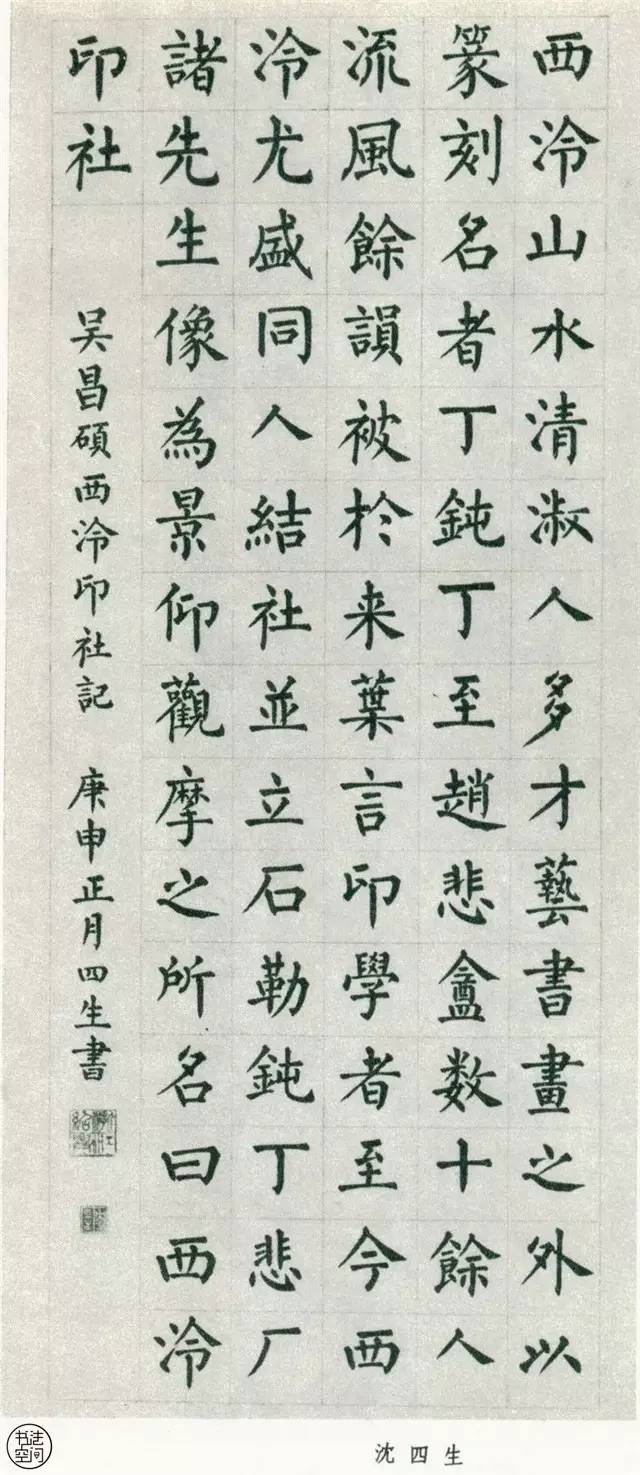 西泠山水清淑人多才藝書畫之外以
篆刻名者丁鈍丁至趙悲盦数十餘人
流風餘韻被於来葉言印學者至今西
泠尤盛同人結社並立石勒鈍丁悲厂
諸先生像為景仰觀摩之所名曰西泠
印社
吴昌碩西泠印社記 庚申正月四生書
书法
空间
沈四生